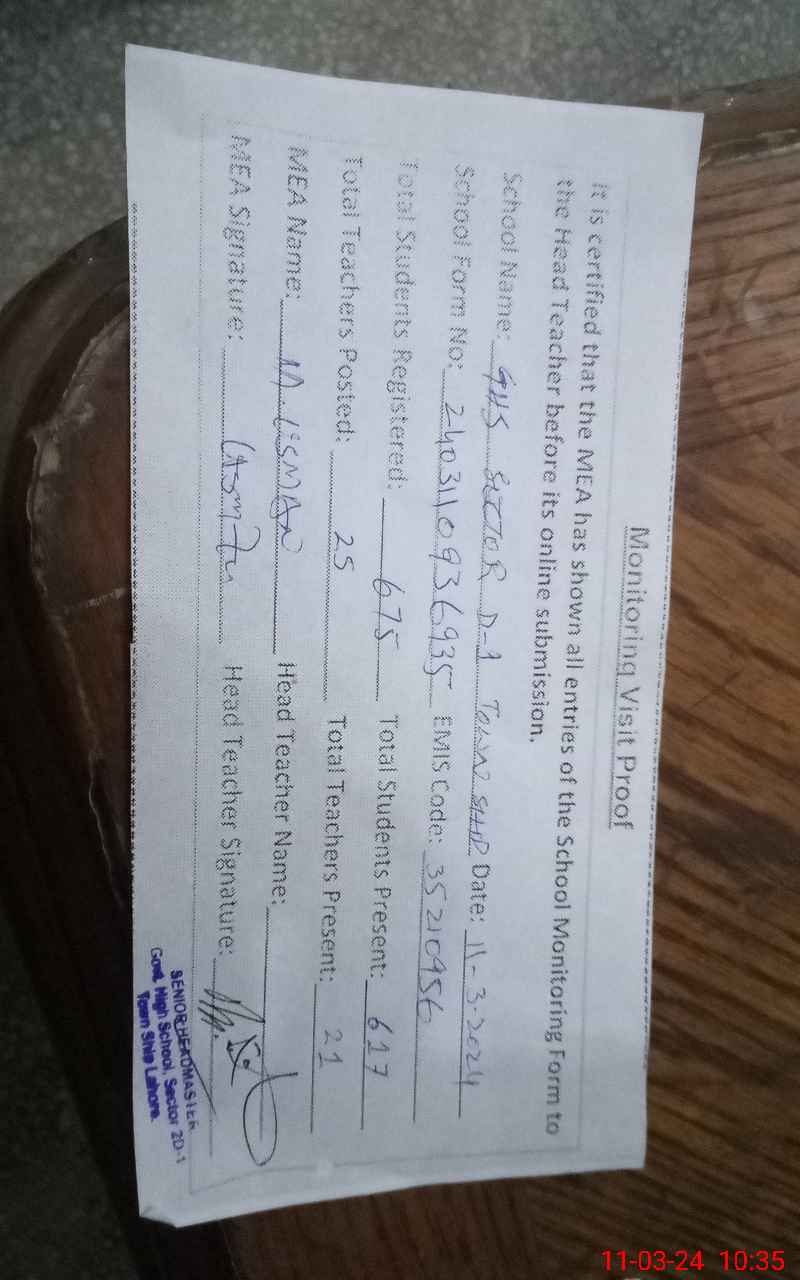 Monitoring Visit Proof
It is certified that the MEA has shown all entries of the School Monitoring Form to
the Head Teacher before its online submission.
School Name: GHS SECTOR D-1 TOWN SHIP Date: 11-3-2024
School Form No: 2403110936935 EMIS Code: 35210956
Total Students Registered: 675 Total Students Present: 617
Total Teachers Posted: 25 Total Teachers Present: 21
MEA Name: M. USMAN Head Teacher Name:
MEA Signature: Head Teacher Signature:
SENIOR HEADMASTER
Govt. High School, Sector 2D-1
Town Ship Lahore.
11-03-24 10:35